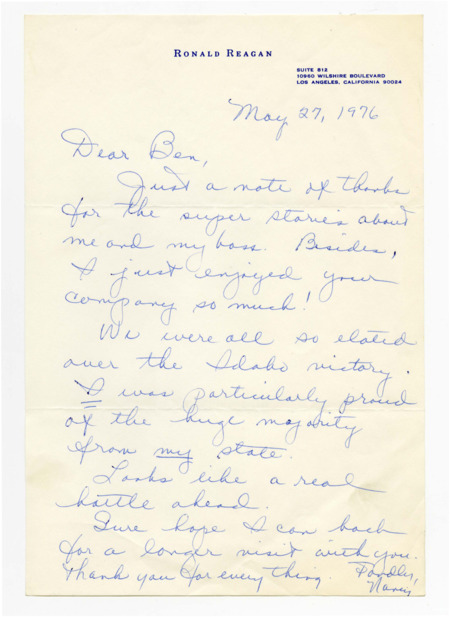 RONALD REAGAN
SUITE 812
10960 WILSHIRE BOULEVARD
LOS ANGELES, CALIFORNIA 90024
May 27, 1976
Dear Ben,
Just a note of thanks
for the super stories about
me and my boss. Besides,
I just enjoyed your
company so much!
We were all so elated
over the Idaho victory.
I was particularly proud
of the huge majority
from my state.
Looks like a real
battle ahead.
Sure hope I can back
for a longer visit with you.
Thank you for everything. Fondly,
Nancy